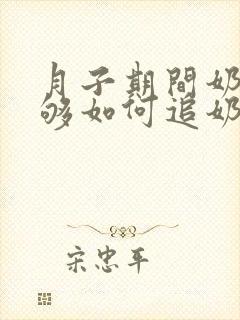 月子期間奶
够如何追奶
宋忠平